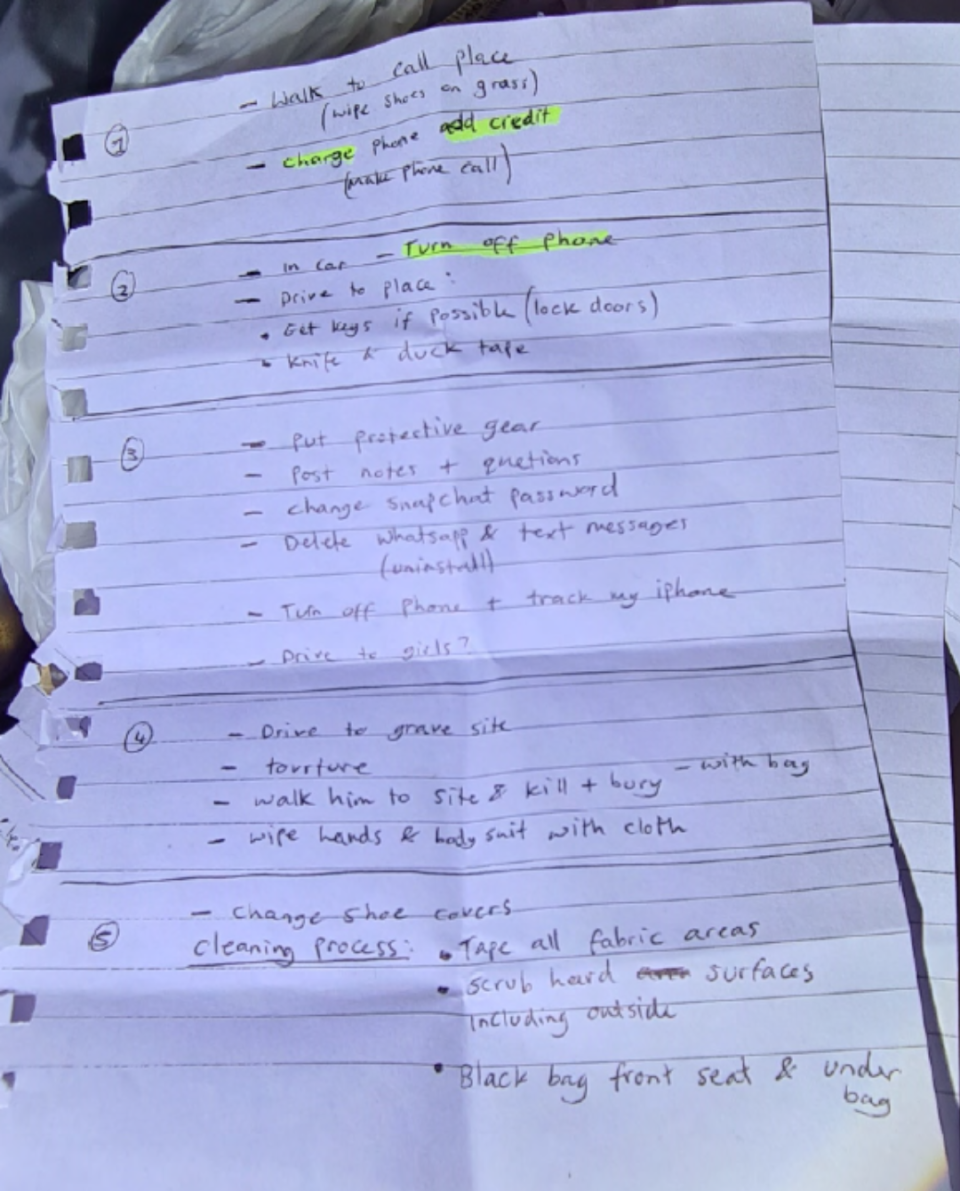 ① - Walk to call place
(wipe shoes on grass)
- charge phone add credit
(make phone call)
② - In car - Turn off phone
- Drive to place:
• Get keys if possible (lock doors)
• knife & duck tape
③ - Put protective gear
- Post notes + quetions
- change snapchat password
- Delete whatsapp & text messages
(uninstall)
- Turn off phone + track my iphone
- Drive to girls?
④ - Drive to grave site
- tourture
- walk him to site & kill + bury - with bag
- wipe hands & body suit with cloth
⑤ - change shoe covers
cleaning process: • Tape all fabric areas
• scrub hard surfaces
including outside
• Black bag front seat & under
bag